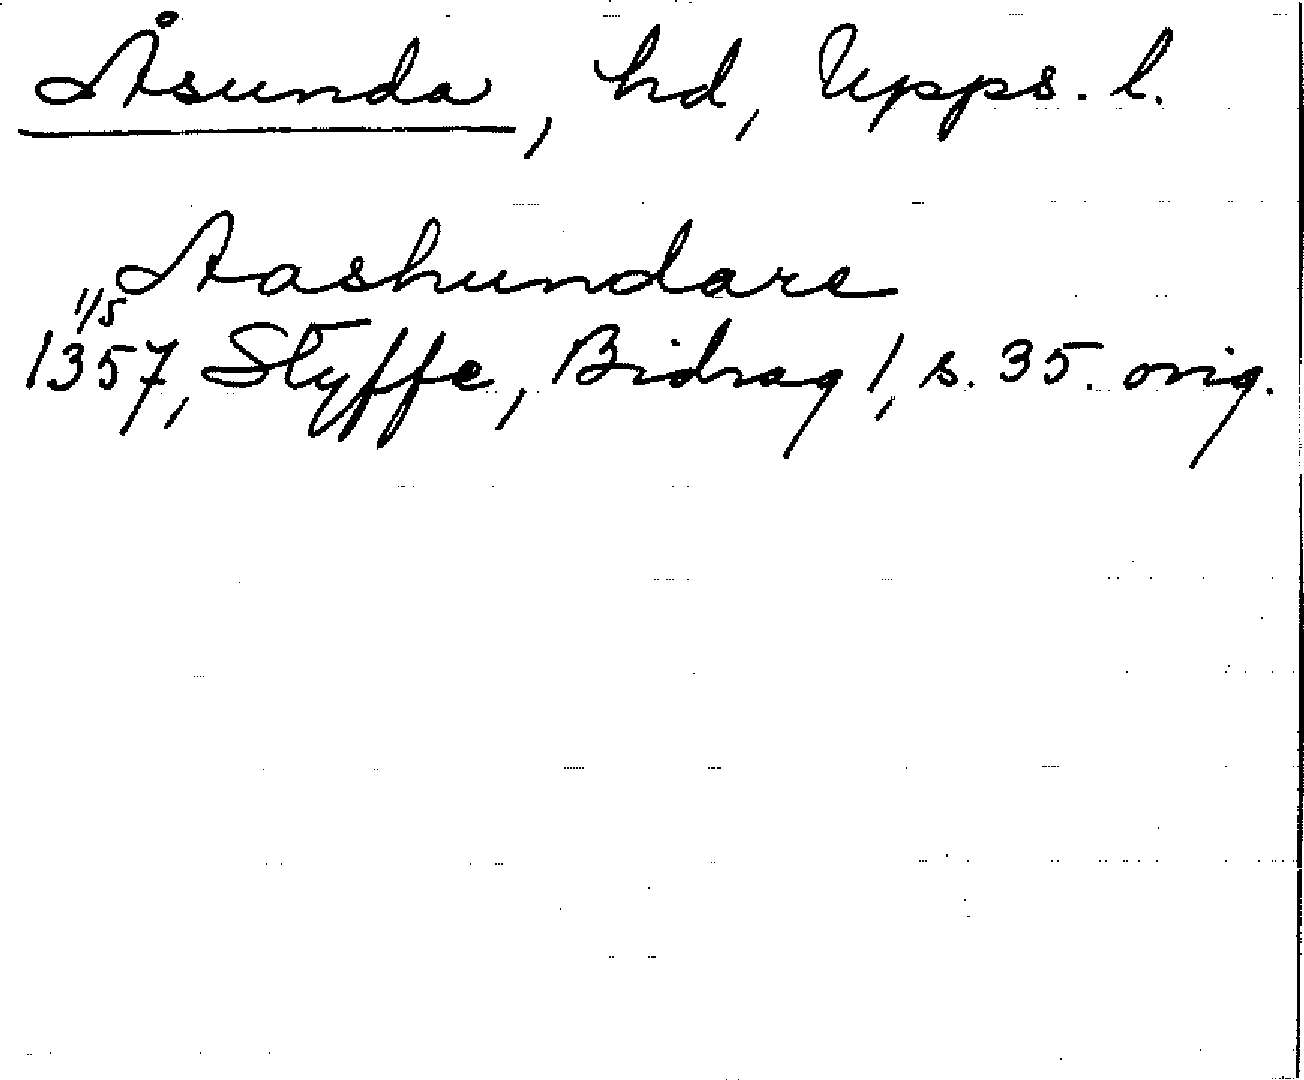 Åsunda, hd, Upps. l.
Aashundare
1/5
1357, Styffe, Bidrag 1, s. 35. orig.